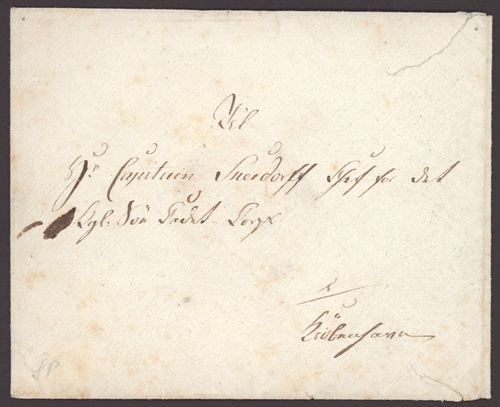 Til
Hr Capitain Sneedorff Chef for det
Kgl. Söe Cadet Corps
Kiöbenhavn